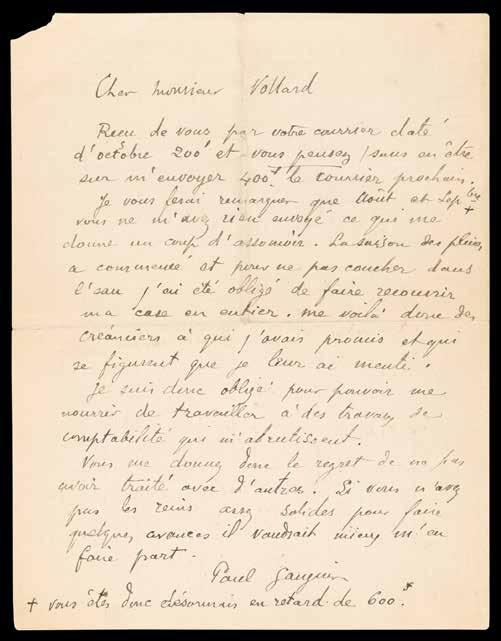 Cher Monsieur Vollard
Reçu de vous par votre courrier daté
d'octobre 200f et vous pensez (sans en être
sur m'envoyer 400f. le courrier prochain.
Je vous ferai remarquer que Août et Sepbre +
vous ne m'avez rien envoyé ce qui me
donne un coup d'assomoir. La saison des pluies
a commencé et pour ne pas coucher dans
l'eau j'ai été obligé de faire recouvrir
ma case en entier. me voilà donc des
créanciers à qui j'avais promis et qui
se figurent que je leur ai menti.
Je suis donc obligé pour pouvoir me
nourrir de travailler à des travaux de
comptabilité qui m'abrutissent.
Vous me donnez donc le regret de ne pas
avoir traité avec d'autres. Si vous n'avez
pas les reins assez solides pour faire
quelques avances il vaudrait mieux m'en
faire part.
Paul Gauguin
+ vous êtes donc désormais en retard de 600.f